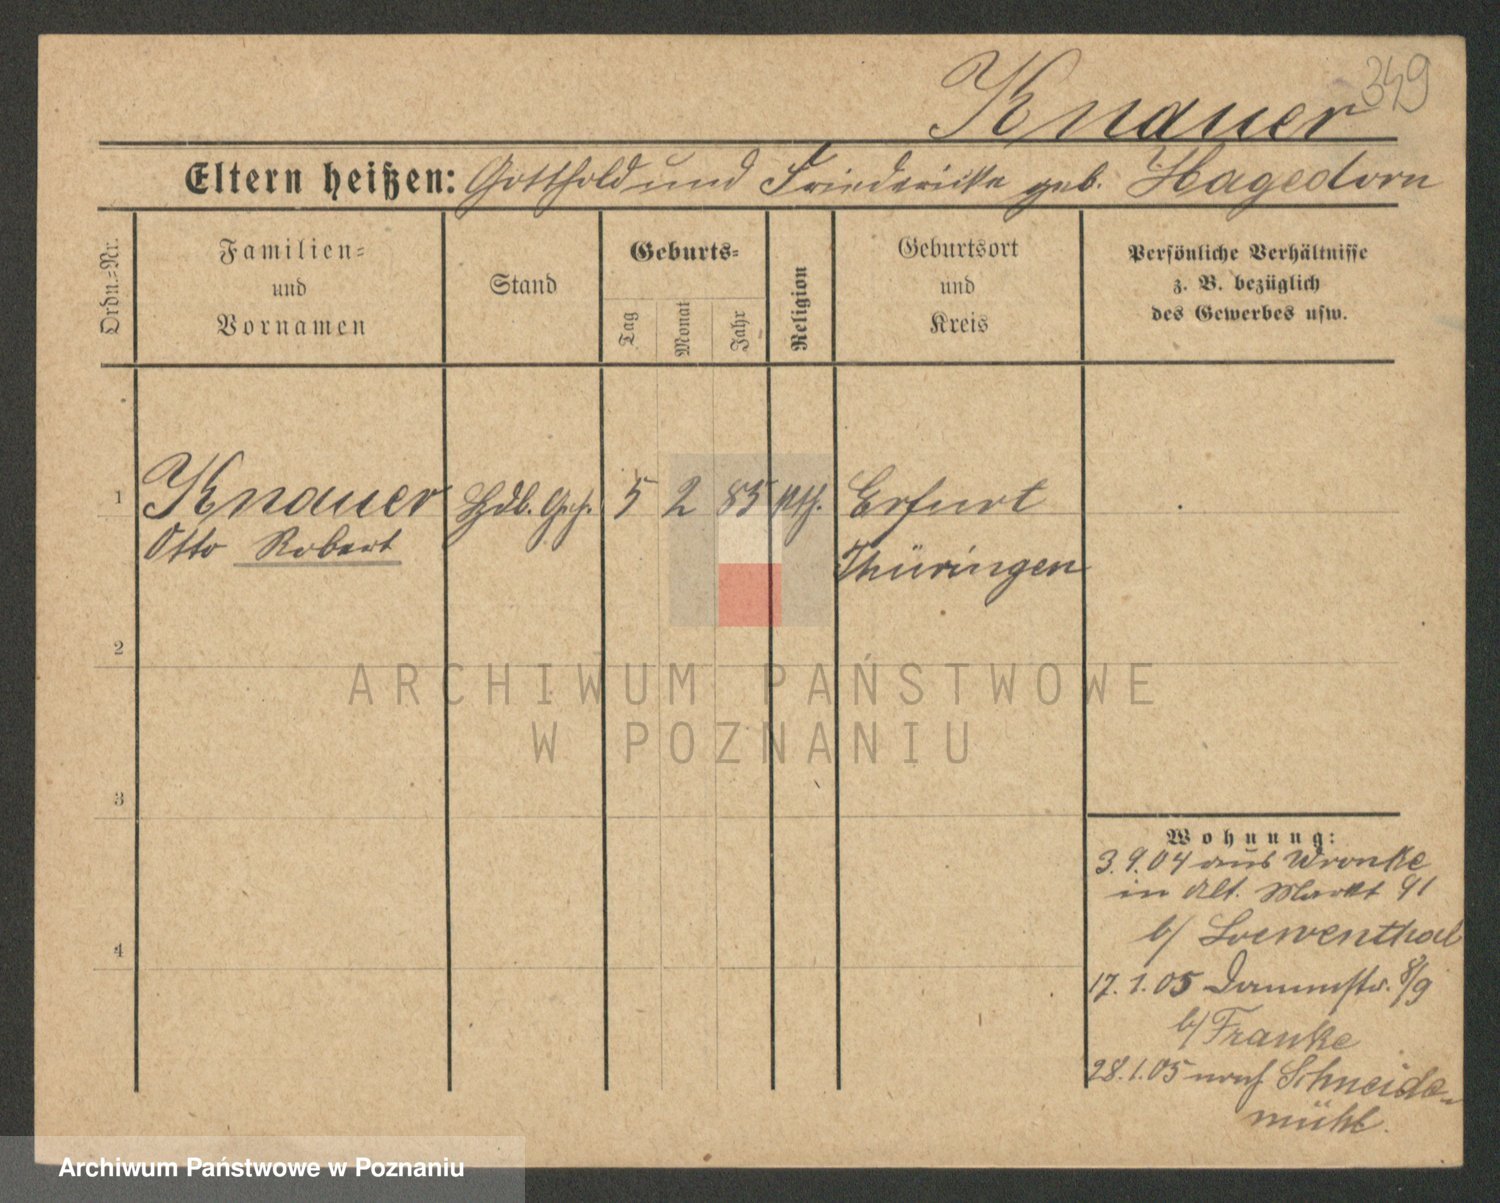 349
Knauer
Eltern heißen: Gotthold und Friedericke geb. Hagedorn
Ordn.=Nr.
Familien=
und
Vornamen
Stand
Geburts=
Tag
Monat
Jahr
Religion
Geburtsort
und
Kreis
Persönliche Verhältnisse
z. B. bezüglich
des Gewerbes usw.
1
Knauer Hdl. Geh. 5 2 85 kth. Erfurt
Otto Robert
Thüringen
2
3
4
Wohnung:
3.9.04 aus Wronke
in Alt. Markt 91
b/ Loewenthal
17.1.05 Dammstr. 8/9
b/ Franke
28.1.05 nach Schneide-
mühl.
ARCHIWUM PAŃSTWOWE
W POZNANIU
Archiwum Państwowe w Poznaniu